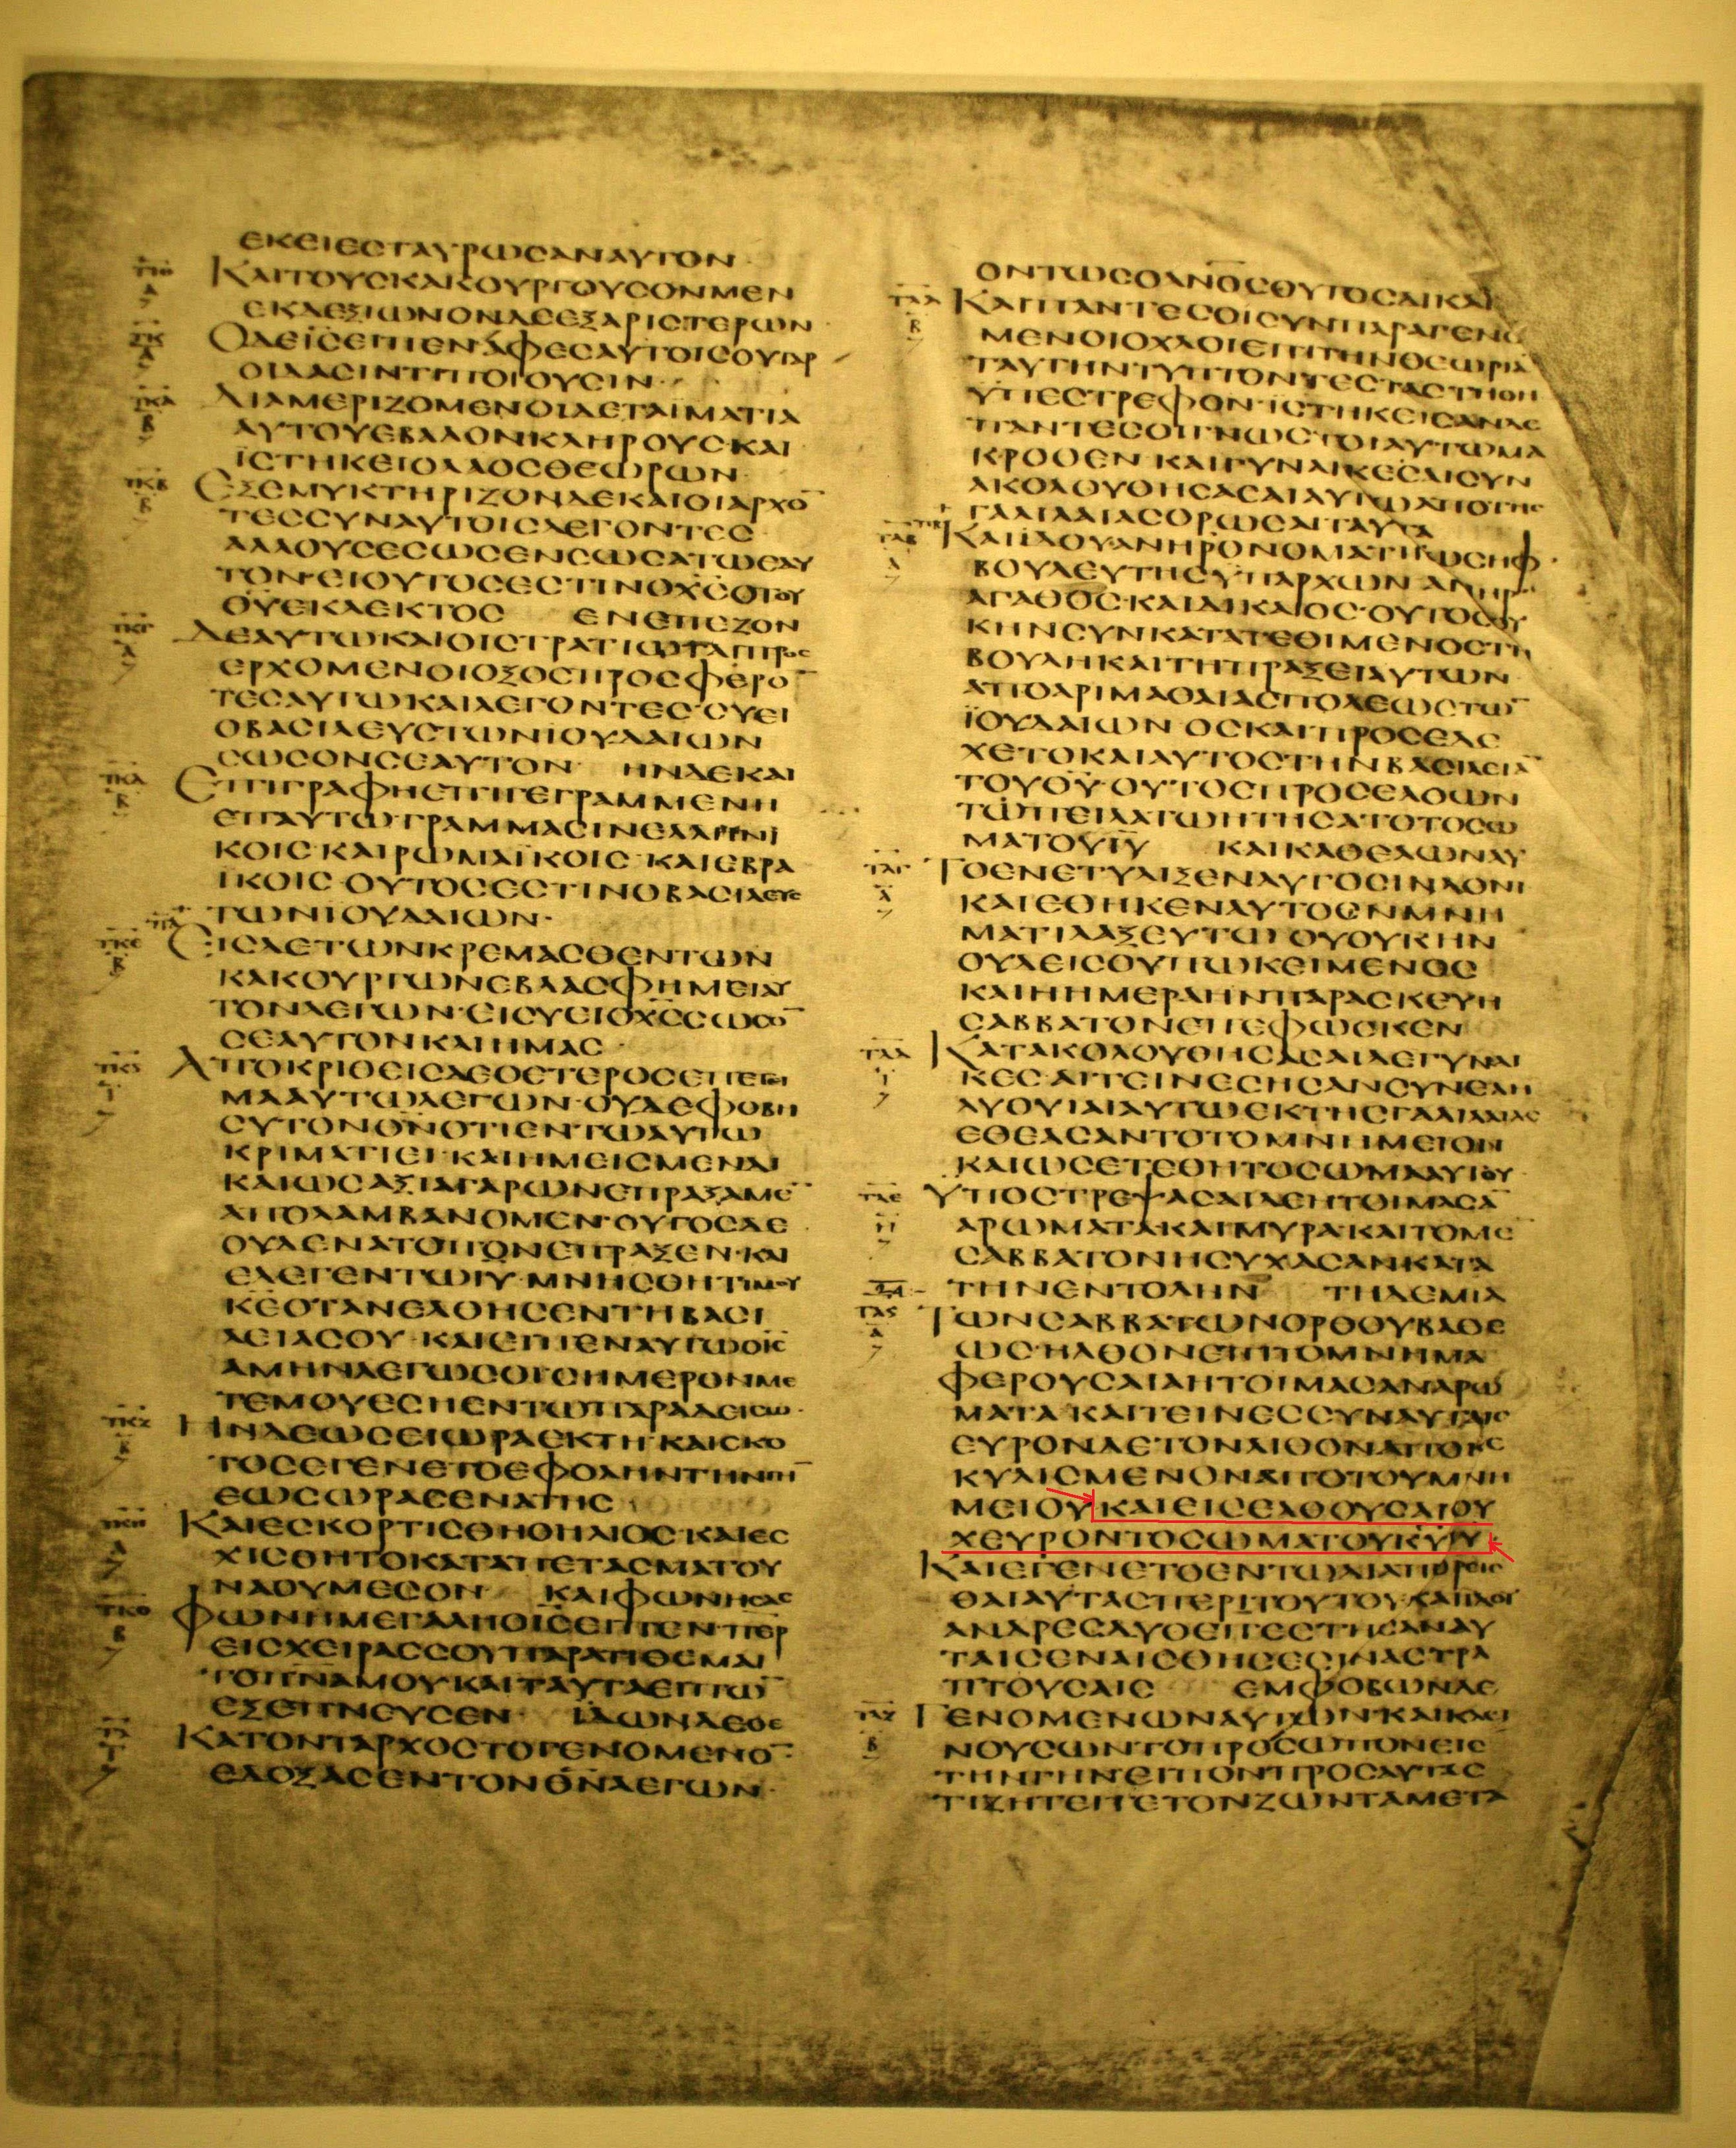 ΕΚΕΙΕϹΤΑΥΡΩϹΑΝΑΥΤΟΝ
ΚΑΙΤΟΥϹΚΑΚΟΥΡΓΟΥϹΟΝΜΕΝ
ΕΚΔΕΞΙΩΝΟΝΔΕΕΞΑΡΙϹΤΕΡΩΝ
ΟΔΕΙϹΕΙΠΕΝΑΦΕϹΑΥΤΟΙϹΟΥΓΑΡ
ΟΙΔΑϹΙΝΤΙΠΟΙΟΥϹΙΝ
ΔΙΑΜΕΡΙΖΟΜΕΝΟΙΔΕΤΑΙΜΑΤΙΑ
ΑΥΤΟΥΕΒΑΛΟΝΚΛΗΡΟΥϹΚΑΙ
ΙϹΤΗΚΕΙΟΛΑΟϹΘΕΩΡΩΝ
ΕΞΕΜΥΚΤΗΡΙΖΟΝΔΕΚΑΙΟΙΑΡΧΟ̅
ΤΕϹϹΥΝΑΥΤΟΙϹΛΕΓΟΝΤΕϹ
ΑΛΛΟΥϹΕϹΩϹΕΝϹΩϹΑΤΩΕΑΥ
ΤΟΝ·ΕΙΟΥΤΟϹΕϹΤΙΝΟΧ̅Ϲ̅ΟΤΟΥ
Θ̅Υ̅ΕΚΛΕΚΤΟϹ ΕΝΕΠΕΖΟΝ
ΔΕΑΥΤΩΚΑΙΟΙϹΤΡΑΤΙΩΤΑΙΠΡΟϹ
ΕΡΧΟΜΕΝΟΙΟΞΟϹΠΡΟϹΦΕΡΟ̅
ΤΕϹΑΥΤΩΚΑΙΛΕΓΟΝΤΕϹ·ϹΥΕΙ
ΟΒΑϹΙΛΕΥϹΤΩΝΙΟΥΔΑΙΩΝ
ϹΩϹΟΝϹΕΑΥΤΟΝ ΗΝΔΕΚΑΙ
ΕΠΙΓΡΑΦΗΕΠΙΓΕΓΡΑΜΜΕΝΗ
ΕΠΑΥΤΩΓΡΑΜΜΑϹΙΝΕΛΛΗΝΙ
ΚΟΙϹΚΑΙΡΩΜΑΪΚΟΙϹ·ΚΑΙΕΒΡΑ
ΙΚΟΙϹ·ΟΥΤΟϹΕϹΤΙΝΟΒΑϹΙΛΕΥϹ
ΤΩΝΙΟΥΔΑΙΩΝ·
ΕΙϹΔΕΤΩΝΚΡΕΜΑϹΘΕΝΤΩΝ
ΚΑΚΟΥΡΓΩΝΕΒΛΑϹΦΗΜΕΙΑΥ
ΤΟΝΛΕΓΩΝ·ΕΙϹΥΕΙΟΧ̅Ϲ̅ϹΩϹΟ̅
ϹΕΑΥΤΟΝΚΑΙΗΜΑϹ
ΑΠΟΚΡΙΘΕΙϹΔΕΟΕΤΕΡΟϹΕΠΕΤΙ
ΜΑΑΥΤΩΛΕΓΩΝ·ΟΥΔΕΦΟΒΗ
ϹΥΤΟΝΘ̅Ν̅ΟΤΙΕΝΤΩΑΥΤΩ
ΚΡΙΜΑΤΙΕΙ·ΚΑΙΗΜΕΙϹΜΕΝΔΙ
ΚΑΙΩϹΑΞΙΑΓΑΡΩΝΕΠΡΑΞΑΜΕ̅
ΑΠΟΛΑΜΒΑΝΟΜΕΝ·ΟΥΤΟϹΔΕ
ΟΥΔΕΝΑΤΟΠΟΝΕΠΡΑΞΕΝ·ΚΑΙ
ΕΛΕΓΕΝΤΩΙ̅Υ̅·ΜΝΗϹΘΗΤΙΜΟΥ
Κ̅Ε̅ΟΤΑΝΕΛΘΗϹΕΝΤΗΒΑϹΙ
ΛΕΙΑϹΟΥ·ΚΑΙΕΙΠΕΝΑΥΤΩΟΙ̅Ϲ̅
ΑΜΗΝΛΕΓΩϹΟΙϹΗΜΕΡΟΝΜΕ
ΤΕΜΟΥΕϹΗΕΝΤΩΠΑΡΑΔΕΙϹΩ·
ΗΝΔΕΩϹΕΙΩΡΑΕΚΤΗ·ΚΑΙϹΚΟ
ΤΟϹΕΓΕΝΕΤΟΕΦΟΛΗΝΤΗΝΓΗ̅
ΕΩϹΩΡΑϹΕΝΑΤΗϹ
ΚΑΙΕϹΚΟΡΤΙϹΘΗΟΗΛΙΟϹ·ΚΑΙΕϹ
ΧΙϹΘΗΤΟΚΑΤΑΠΕΤΑϹΜΑΤΟΥ
ΝΑΟΥΜΕϹΟΝ ΚΑΙΦΩΝΗϹΑϹ
ΦΩΝΗΜΕΓΑΛΗΟΙ̅Ϲ̅ΕΙΠΕΝΠΕΡ
ΕΙϹΧΕΙΡΑϹϹΟΥΠΑΡΑΤΙΘΕΜΑΙ
ΤΟΠ̅Ν̅Α̅ΜΟΥΚΑΙΤΑΥΤΑΕΙΠΩ̅
ΕΞΕΠΝΕΥϹΕΝ· ΙΔΩΝΔΕΟΕ
ΚΑΤΟΝΤΑΡΧΟϹΤΟΓΕΝΟΜΕΝΟ̅
ΕΔΟΞΑϹΕΝΤΟΝΘ̅Ν̅ΛΕΓΩΝ·
ΟΝΤΩϹΟΑ̅Ν̅Ο̅Ϲ̅ΟΥΤΟϹΔΙΚΑΙ
ΚΑΙΠΑΝΤΕϹΟΙϹΥΝΠΑΡΑΓΕΝΟ
ΜΕΝΟΙΟΧΛΟΙΕΠΙΤΗΝΘΕΩΡΙΑ̅
ΤΑΥΤΗΝΤΥΠΤΟΝΤΕϹΤΑϹΤΗΘΗ
ΥΠΕϹΤΡΕΦΟΝ·ΙϹΤΗΚΕΙϹΑΝΔΕ
ΠΑΝΤΕϹΟΙΓΝΩϹΤΟΙΑΥΤΩΜΑ
ΚΡΟΘΕΝ ΚΑΙΓΥΝΑΙΚΕϹΑΙϹΥΝ
ΑΚΟΛΟΥΘΗϹΑϹΑΙΑΥΤΩΑΠΟΤΗϹ
ΓΑΛΙΛΑΙΑϹΟΡΩϹΑΙΤΑΥΤΑ
ΚΑΙΙΔΟΥΑΝΗΡΟΝΟΜΑΤΙΙΩϹΗΦ·
ΒΟΥΛΕΥΤΗϹΥΠΑΡΧΩΝ ΑΝΗΡ
ΑΓΑΘΟϹ·ΚΑΙΔΙΚΑΙΟϹ·ΟΥΤΟϹΟΥ
ΚΗΝϹΥΝΚΑΤΑΤΕΘΙΜΕΝΟϹΤΗ
ΒΟΥΛΗΚΑΙΤΗΠΡΑΞΕΙΑΥΤΩΝ
ΑΠΟΑΡΙΜΑΘΑΙΑϹΠΟΛΕΩϹΤΩ̅
ΙΟΥΔΑΙΩΝ ΟϹΚΑΙΠΡΟϹΕΔΕ
ΧΕΤΟΚΑΙΑΥΤΟϹΤΗΝΒΑϹΙΛΕΙΑ̅
ΤΟΥΘ̅Υ̅·ΟΥΤΟϹΠΡΟϹΕΛΘΩΝ
ΤΩΠΕΙΛΑΤΩΗΤΗϹΑΤΟΤΟϹΩ
ΜΑΤΟΥΙ̅Υ̅ ΚΑΙΚΑΘΕΛΩΝΑΥ
ΤΟΕΝΕΤΥΛΙΞΕΝΑΥΤΟϹΙΝΔΟΝΙ
ΚΑΙΕΘΗΚΕΝΑΥΤΟΕΝΜΝΗ
ΜΑΤΙΛΑΞΕΥΤΩ ΟΥΟΥΚΗΝ
ΟΥΔΕΙϹΟΥΠΩΚΕΙΜΕΝΟϹ
ΚΑΙΗΗΜΕΡΑΗΝΠΑΡΑϹΚΕΥΗ
ϹΑΒΒΑΤΟΝΕΠΕΦΩϹΚΕΝ
ΚΑΤΑΚΟΛΟΥΘΗϹΑϹΑΙΔΕΓΥΝΑΙ
ΚΕϹ·ΑΙΤΕΙΝΕϹΗϹΑΝϹΥΝΕΛΗ
ΛΥΘΥΙΑΙΑΥΤΩΕΚΤΗϹΓΑΛΙΛΑΙΑϹ
ΕΘΕΑϹΑΝΤΟΤΟΜΝΗΜΕΙΟΝ
ΚΑΙΩϹΕΤΕΘΗΤΟϹΩΜΑΑΥΤΟΥ
ΥΠΟϹΤΡΕΨΑϹΑΙΔΕΗΤΟΙΜΑϹΑ̅
ΑΡΩΜΑΤΑΚΑΙΜΥΡΑ·ΚΑΙΤΟΜΕ̅
ϹΑΒΒΑΤΟΝΗϹΥΧΑϹΑΝΚΑΤΑ
ΤΗΝΕΝΤΟΛΗΝ ΤΗΔΕΜΙΑ
ΤΩΝϹΑΒΒΑΤΩΝΟΡΘΟΥΒΑΘΕ
ΩϹ·ΗΛΘΟΝΕΠΙΤΟΜΝΗΜΑ
ΦΕΡΟΥϹΑΙΑΗΤΟΙΜΑϹΑΝΑΡΩ
ΜΑΤΑ ΚΑΙΤΕΙΝΕϹϹΥΝΑΥΤΑΙϹ
ΕΥΡΟΝΔΕΤΟΝΛΙΘΟΝΑΠΟΚΕ
ΚΥΛΙϹΜΕΝΟΝΑΠΟΤΟΥΜΝΗ
ΜΕΙΟΥΚΑΙΕΙϹΕΛΘΟΥϹΑΙΟΥ
ΧΕΥΡΟΝΤΟϹΩΜΑΤΟΥΚ̅Υ̅Ι̅Υ̅
ΚΑΙΕΓΕΝΕΤΟΕΝΤΩΔΙΑΠΟΡΕΙϹ
ΘΑΙΑΥΤΑϹΠΕΡΙΤΟΥΤΟΥ·ΚΑΙΙΔΟΥ
ΑΝΔΡΕϹΔΥΟΕΠΕϹΤΗϹΑΝΑΥ
ΤΑΙϹΕΝΑΙϹΘΗϹΕϹΙΝΑϹΤΡΑ
ΠΤΟΥϹΑΙϹ ΕΜΦΟΒΩΝΔΕ
ΓΕΝΟΜΕΝΩΝΑΥΤΩΝΚΑΙΚΛΙ
ΝΟΥϹΩΝΤΟΠΡΟϹΩΠΟΝΕΙϹ
ΤΗΝΓΗΝΕΙΠΟΝΠΡΟϹΑΥΤΑϹ
ΤΙΖΗΤΕΙΤΕΤΟΝΖΩΝΤΑΜΕΤΑ